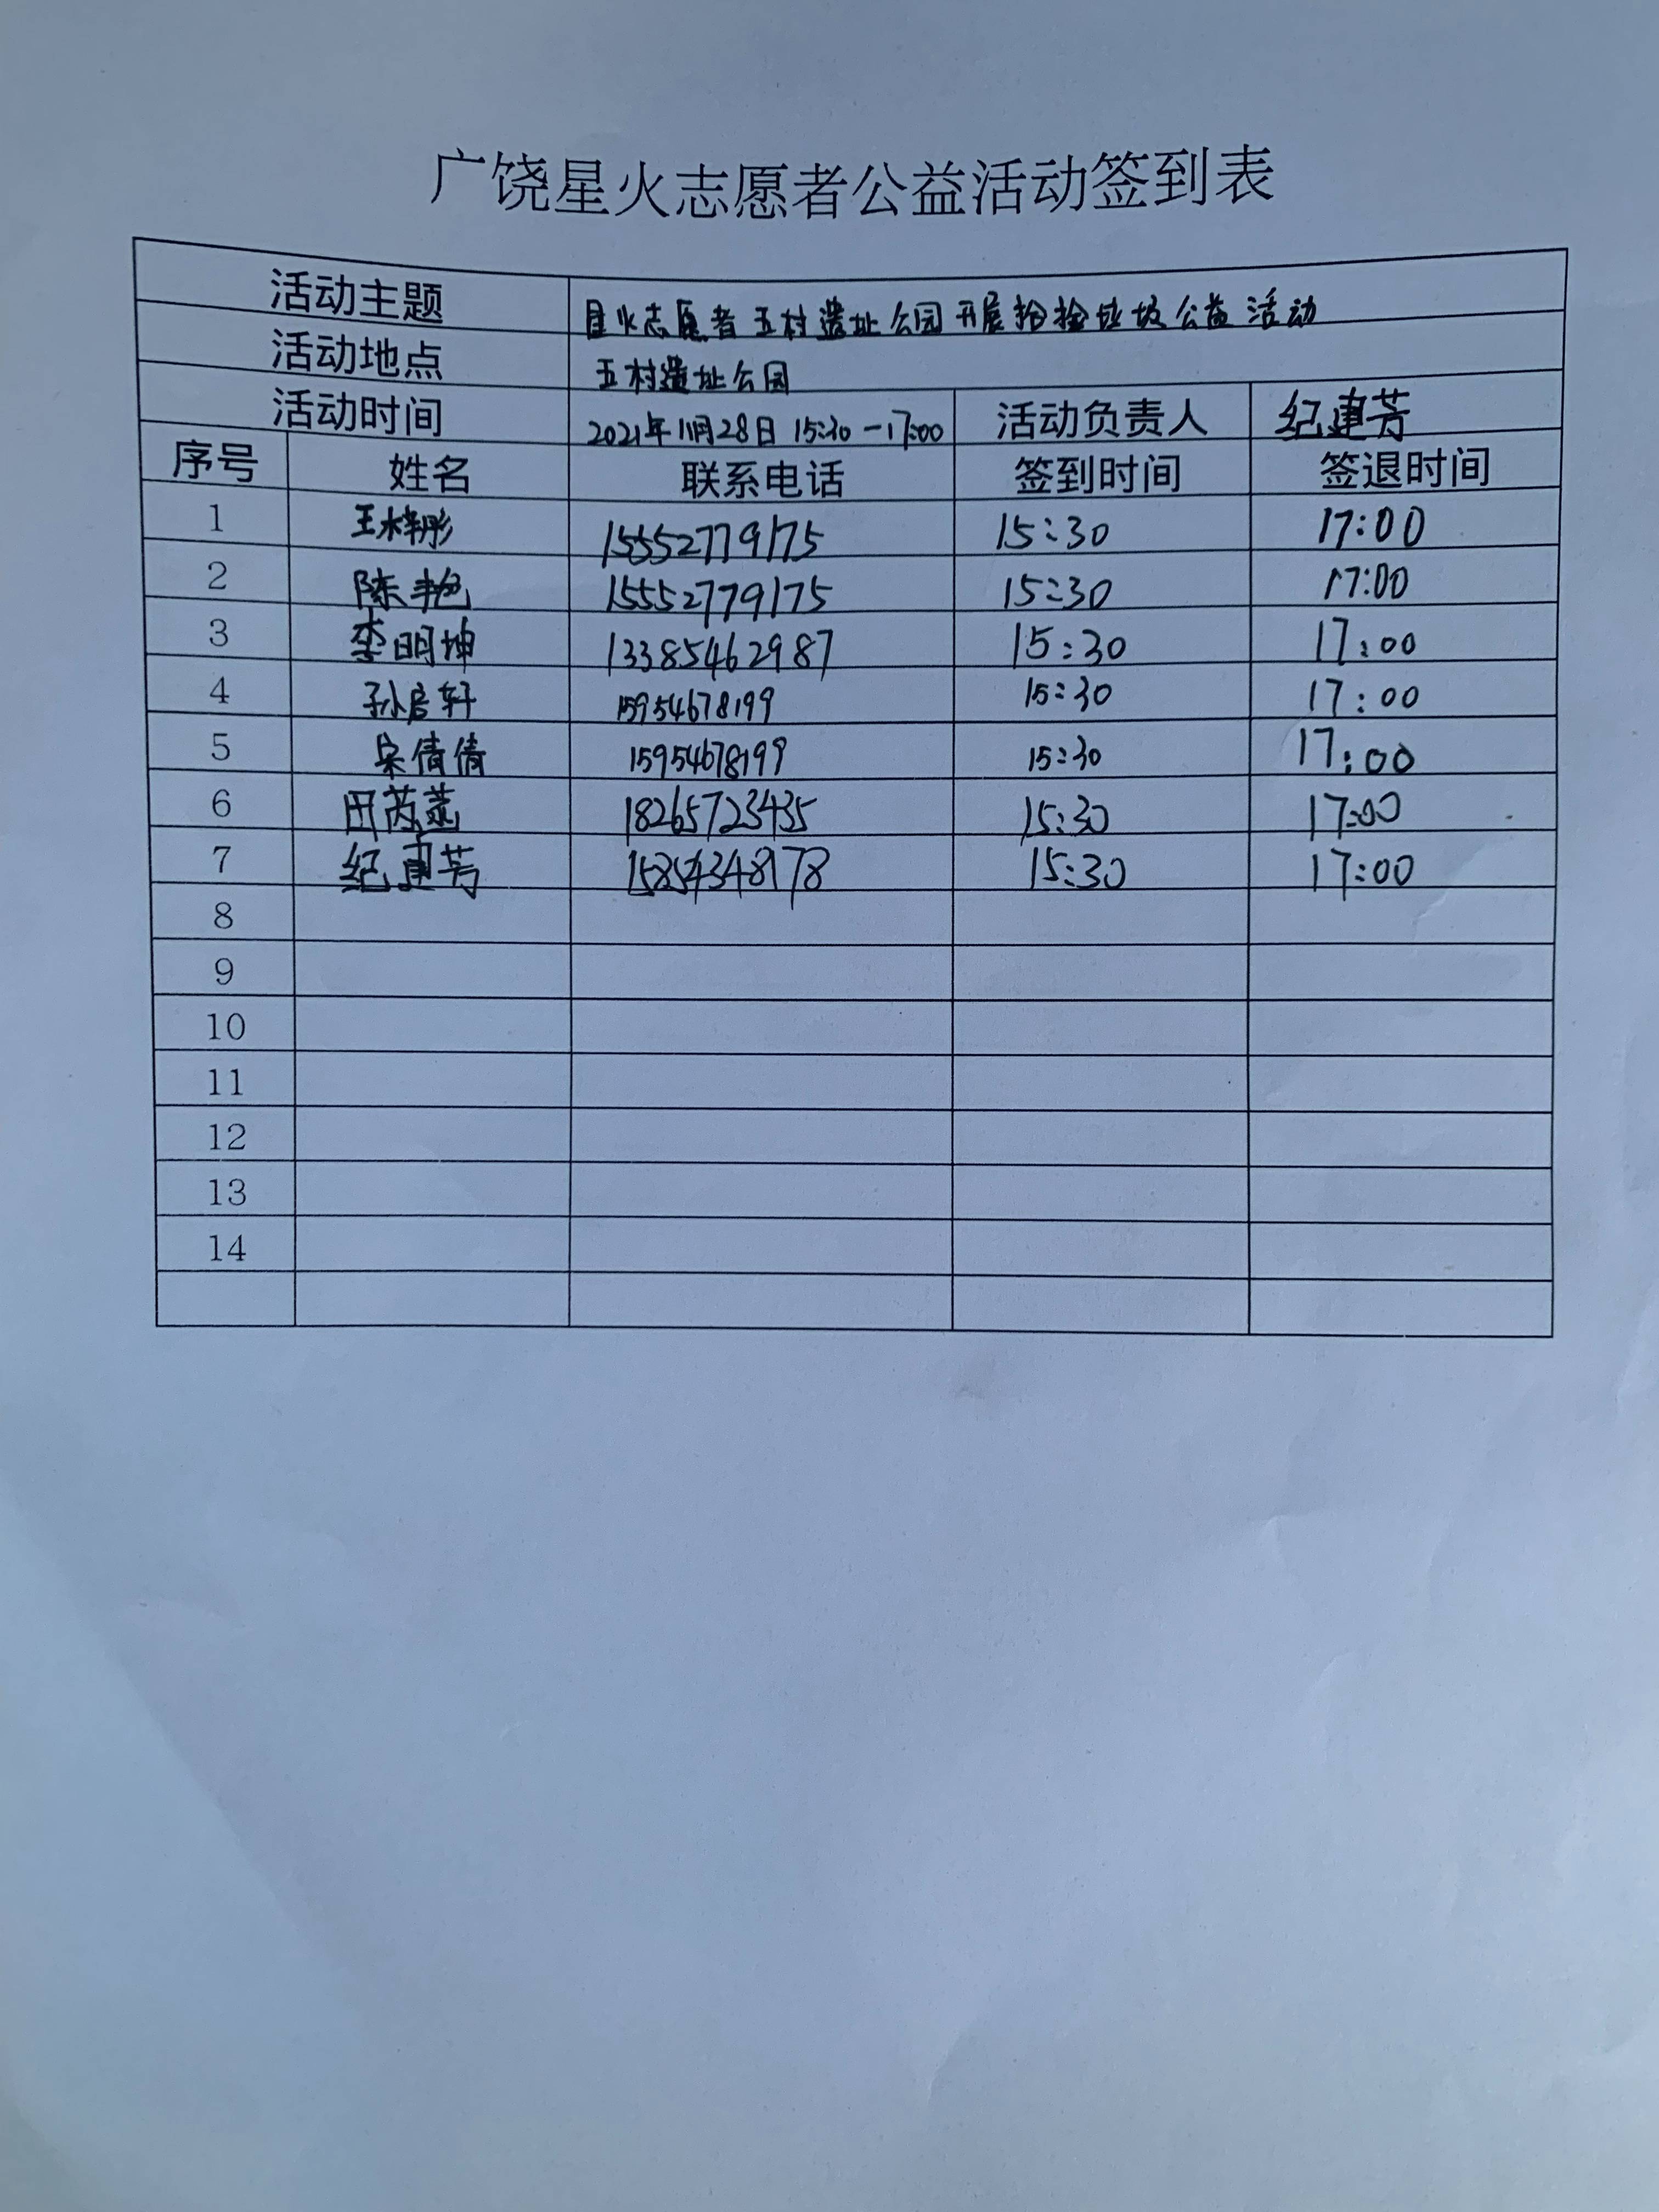 广饶星火志愿者公益活动签到表
活动主题 星火志愿者五村遗址公园开展捡捡垃圾公益活动
活动地点 五村遗址公园
活动时间 2021年11月28日 15:30-17:00 活动负责人 纪建芳
序号 姓名 联系电话 签到时间 签退时间
1 15552779175 15:30 17:00
2 陈艳 15552779175 15:30 17:00
3 李明坤 13385462987 15:30 17:00
4 孙启轩 15954678199 15:30 17:00
5 宋倩倩 15954678199 15:30 17:00
6 18265723435 15:30 17:00
7 纪建芳 15854348178 15:30 17:00
8
9
10
11
12
13
14